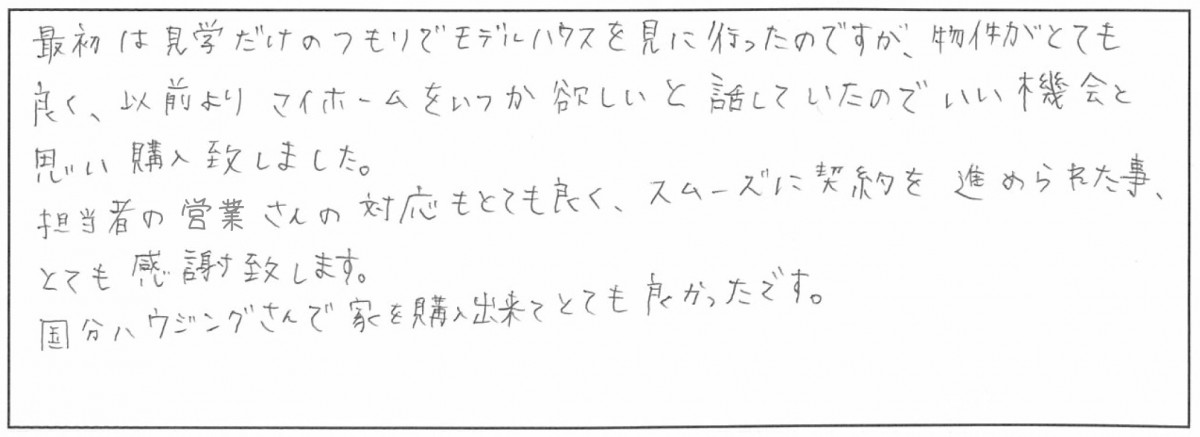 最初は見学だけのつもりでモデルハウスを見に行ったのですが、物件がとても
良く、以前よりマイホームをいつか欲しいと話していたのでいい機会と
思い購入致しました。
担当者の営業さんの対応もとても良く、スムーズに契約を進められた事、
とても感謝致します。
国分ハウジングさんで家を購入出来てとても良かったです。